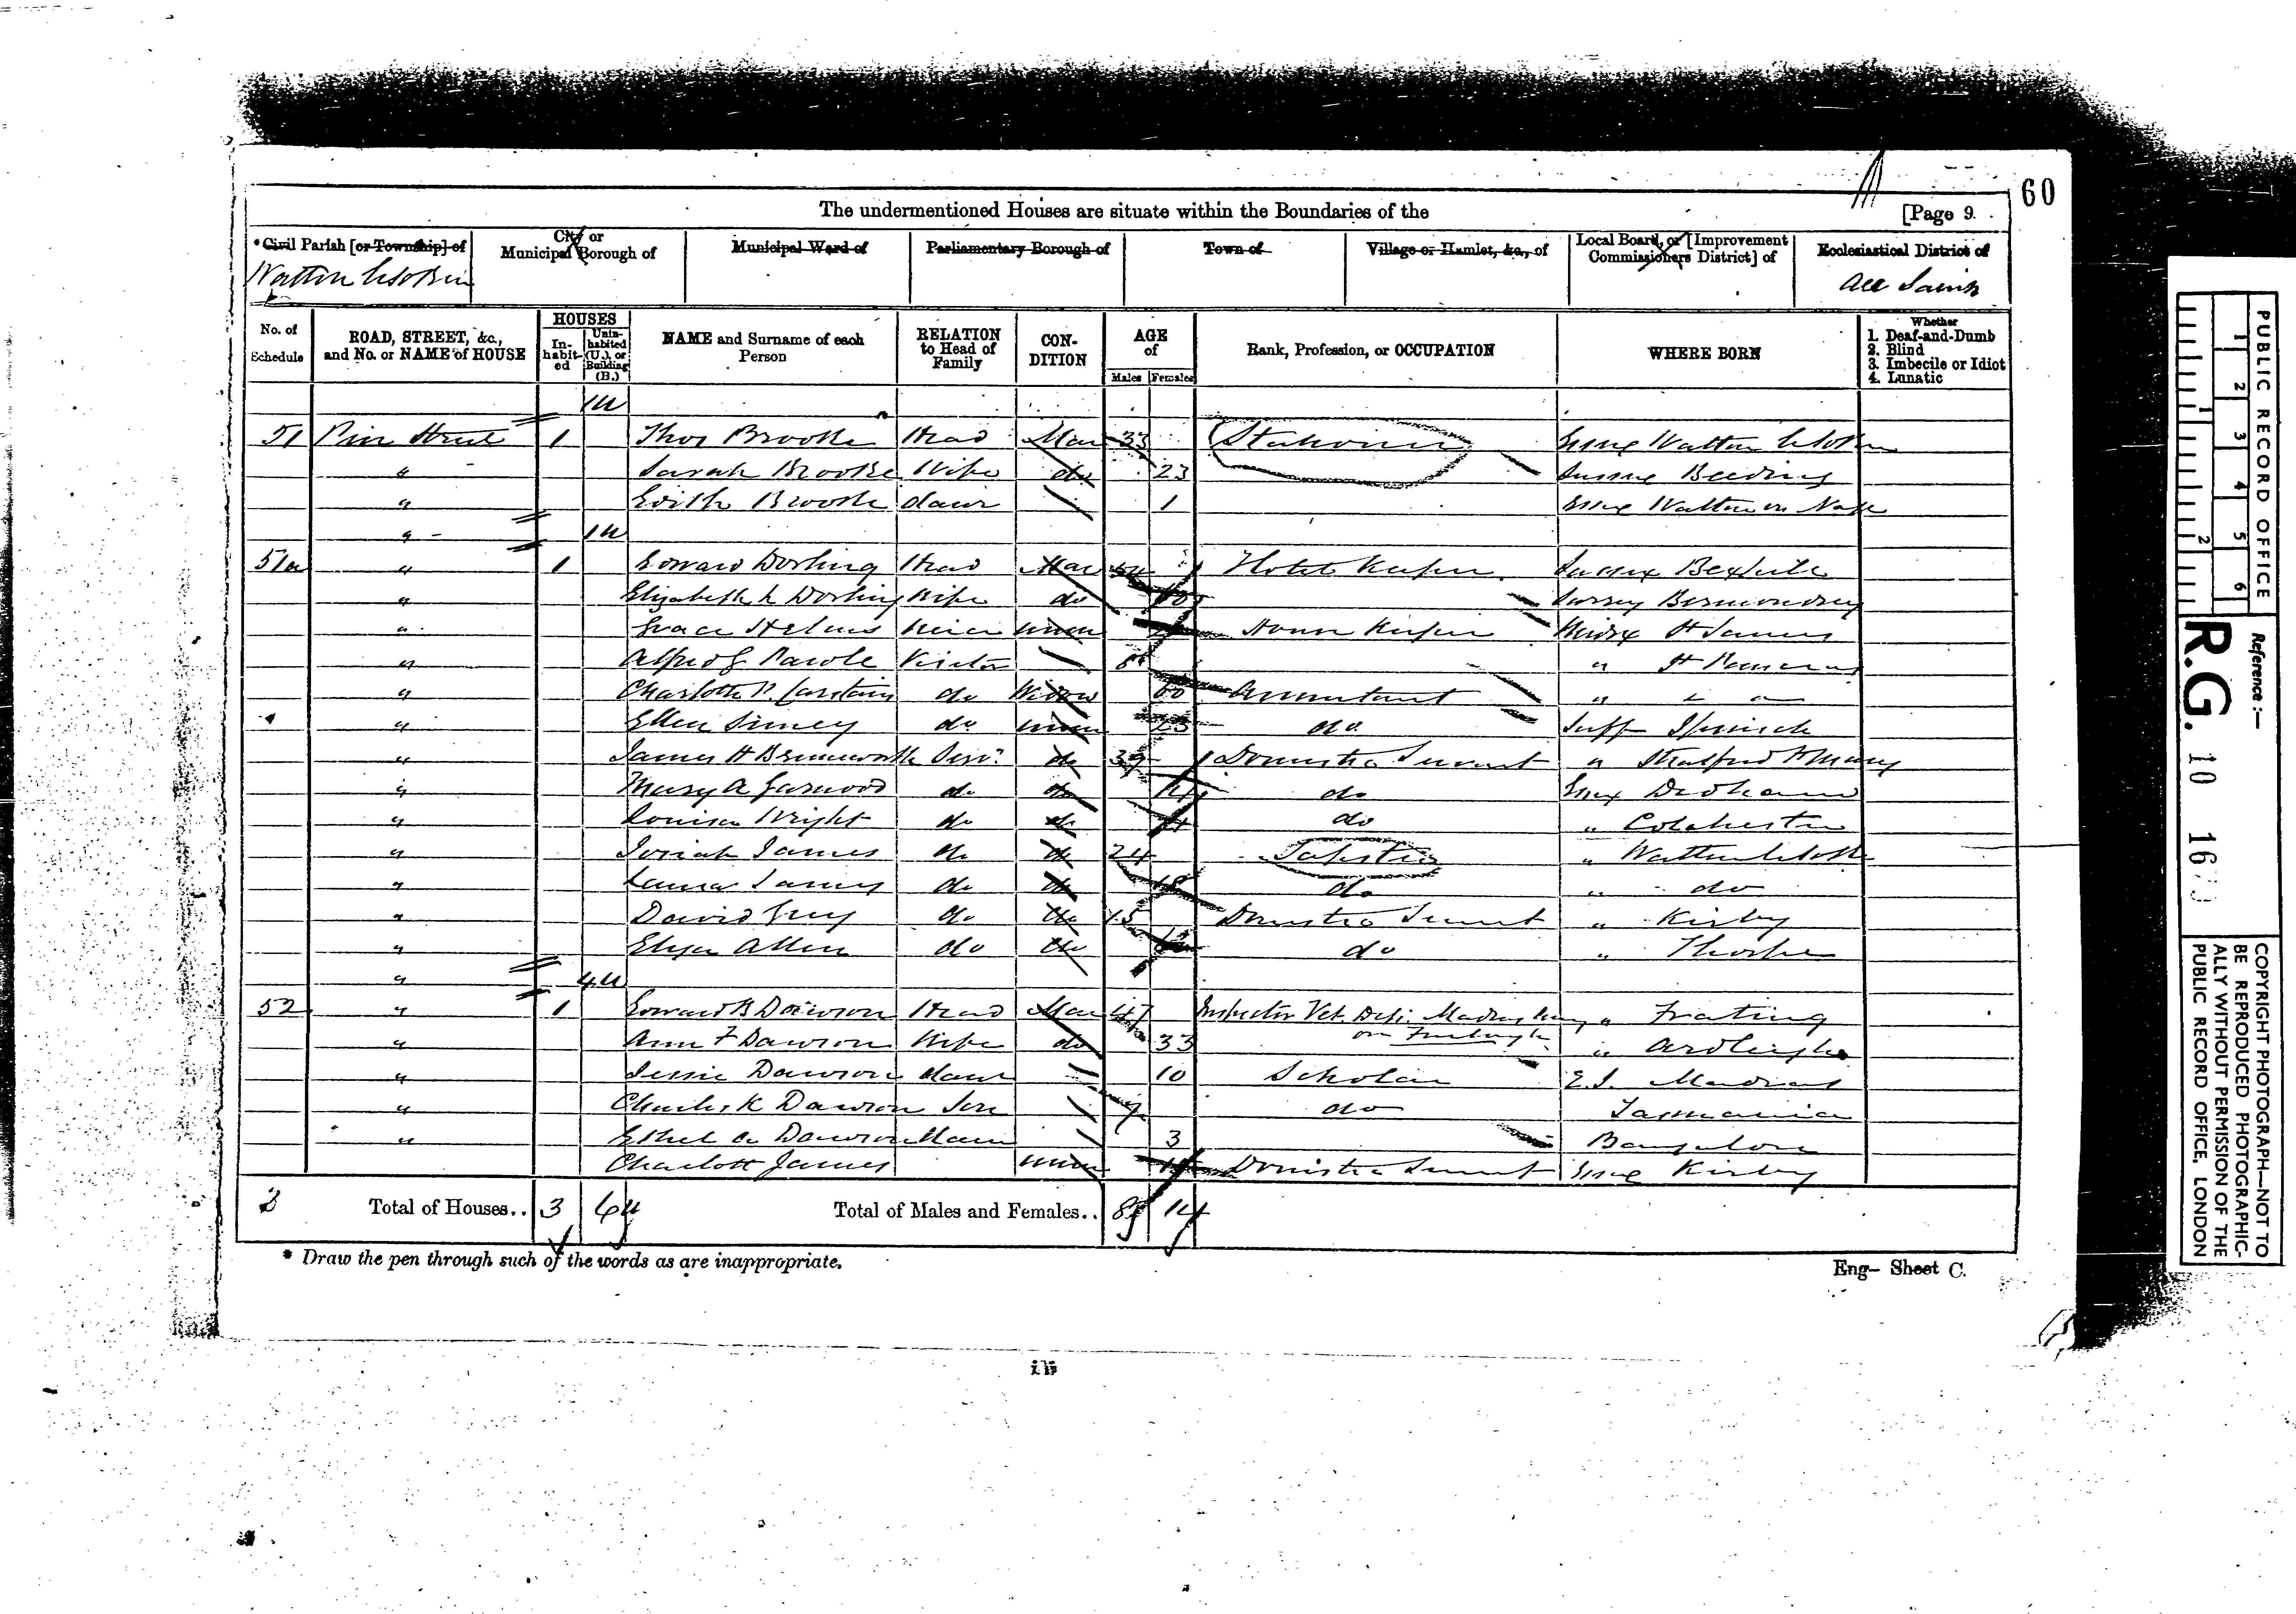 60
The undermentioned Houses are situate within the Boundaries of the [Page 9.
*Civil Parish [or Township] of City or Municipal Borough of Municipal Ward of Parliamentary Borough of Town of Village or Hamlet, &c., of Local Board, or [Improvement Commissioners District] of Ecclesiastical District of
Walton All Saints
No. of Schedule ROAD, STREET, &c., and No. or NAME of HOUSE HOUSES Inhabited Uninhabited (U.), or Building (B.) NAME and Surname of each Person RELATION to Head of Family CONDITION AGE of Males Females Rank, Profession, or OCCUPATION WHERE BORN Whether 1. Deaf-and-Dumb 2. Blind 3. Imbecile or Idiot 4. Lunatic
1U
51 Pier Street 1 Thos Brooke Head Mar 33 Essex Walton
" Sarah Brooke Wife do 23 Sussex Beeding
" Edith Brooke daur 1 Essex Walton on Naze
" 1U
51a " 1 Edward Dorling Head Mar Hotel Keeper Sussex Bexhill
" Elizabeth Dorling Wife do Surrey Bermondsey
" Grace Niece Unm House Keeper Middx St James
" Alfred Visitor " St Pancras
" Charlotte do Widow 60 Annuitant " " "
" Ellen do Unm 23 do Suff Ipswich
" James H Servt do 39 Domestic Servant " Stratford St Mary
" Mary A Garwood do do do Essex Dedham
" Louisa Wright do do do " Colchester
" Josiah James do do 24 " Walton
" Laura James do do 18 do " do
" David Grey do do 15 Domestic Servant " Kirby
" Eliza Allen do do do " Thorpe
" 4U
52 " 1 Edward B Dawson Head Mar 47 Inspector Vet Dept Madras Army " Frating
on Furlough
" Ann F Dawson Wife do 33 " Ardleigh
" Jessie Dawson daur 10 Scholar E.I. Madras
" Charles K Dawson Son do Tasmania
" Ethel Dawson daur 3 Bangalore
Charlott James Unm Domestic Servant Essex Kirby
Total of Houses.. 3 6U Total of Males and Females.. 8 14
* Draw the pen through such of the words as are inappropriate.
Eng— Sheet C.
PUBLIC RECORD OFFICE
1 2 3 4 5 6
1 2
Reference :—
R.G. 10
COPYRIGHT PHOTOGRAPH—NOT TO
BE REPRODUCED PHOTOGRAPHIC-
ALLY WITHOUT PERMISSION OF THE
PUBLIC RECORD OFFICE, LONDON